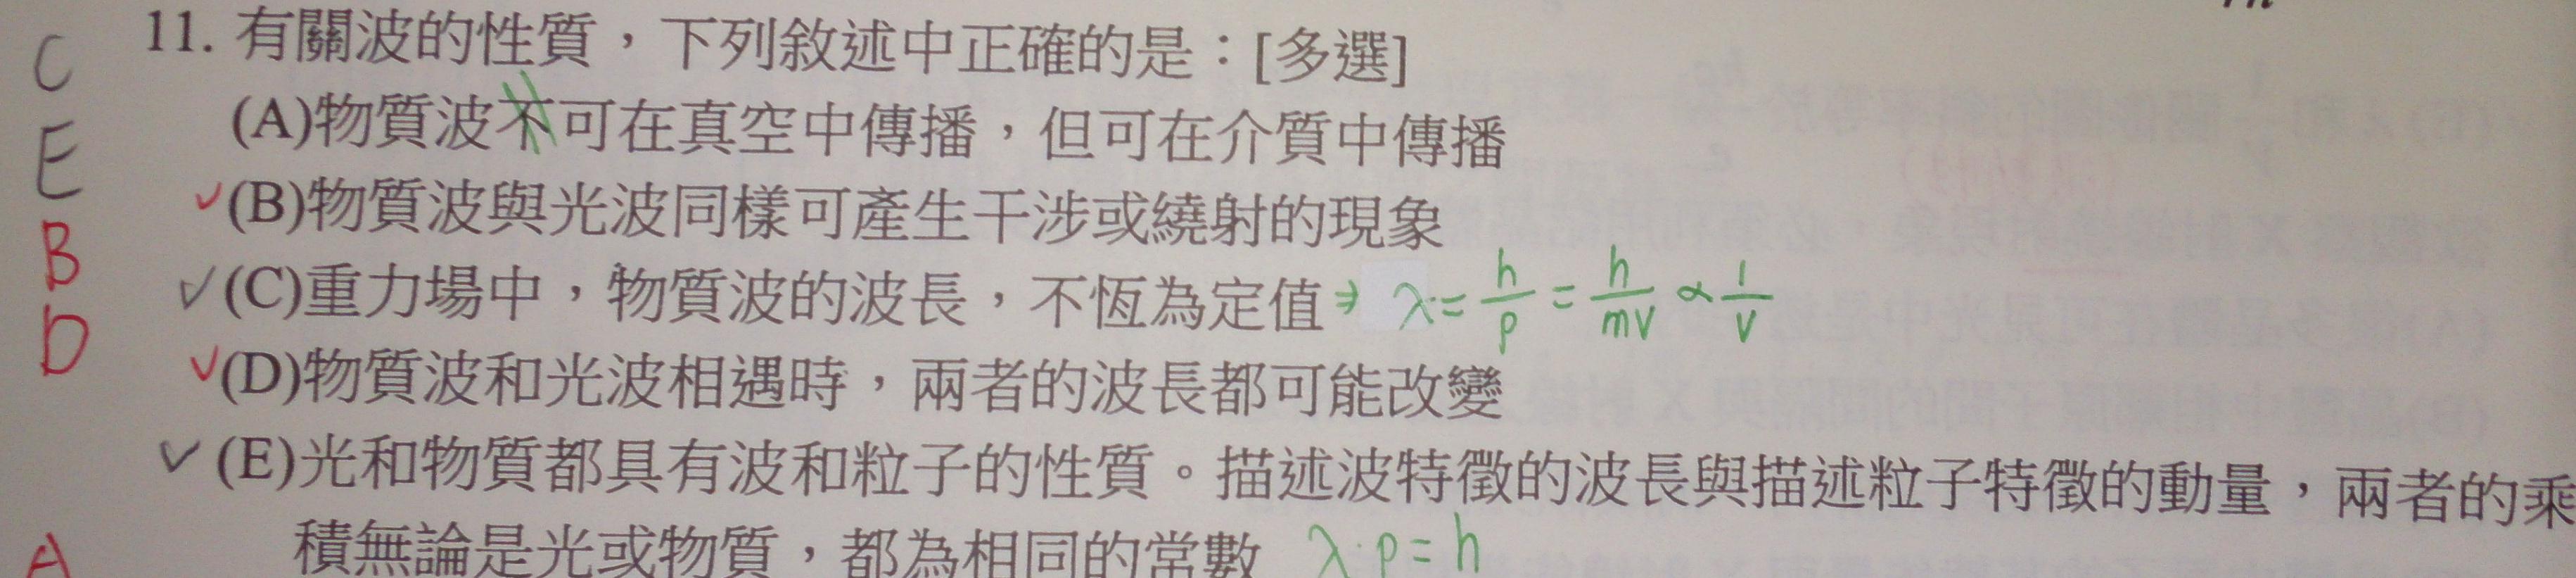 C
E
B
D
A
11. 有關波的性質，下列敘述中正確的是：[多選]
(A)物質波不可在真空中傳播，但可在介質中傳播
✓(B)物質波與光波同樣可產生干涉或繞射的現象
✓(C)重力場中，物質波的波長，不恆為定值⇒ λ = h/p = h/mv ∝ 1/v
✓(D)物質波和光波相遇時，兩者的波長都可能改變
✓(E)光和物質都具有波和粒子的性質。描述波特徵的波長與描述粒子特徵的動量，兩者的乘
積無論是光或物質，都為相同的常數 λ·p=h